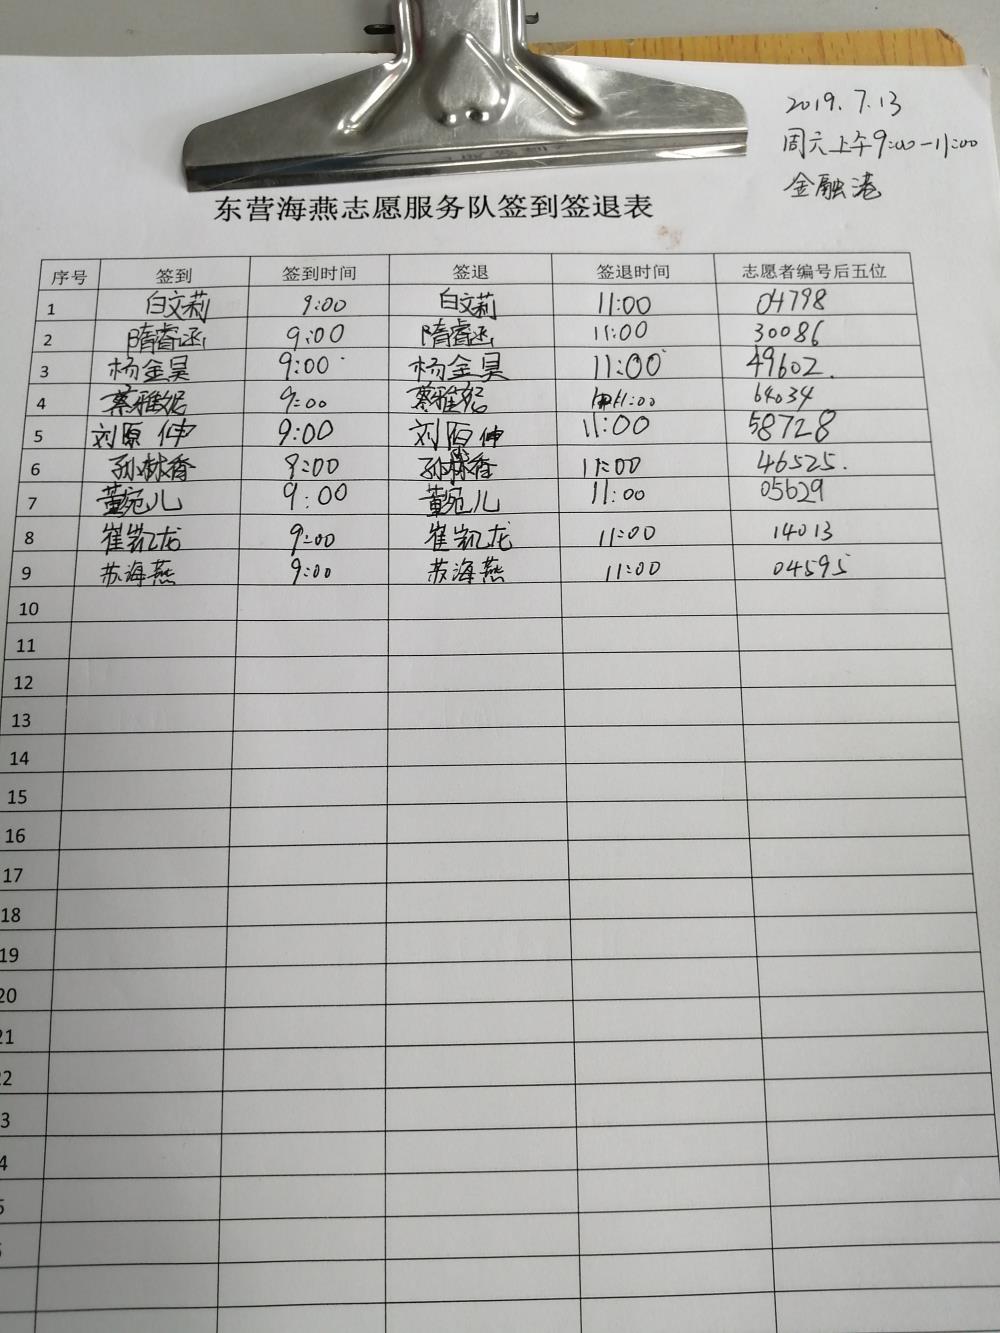 2019.7.13
周六上午9:00-11:00
金融港
东营海燕志愿服务队签到签退表
序号 签到 签到时间 签退 签退时间 志愿者编号后五位
1 白文莉 9:00 白文莉 11:00 04798
2 隋睿函 9:00 隋睿函 11:00 30086
3 杨金昊 9:00 杨金昊 11:00 49602.
4 蔡雅妮 9:00 蔡雅妮 11:00 64034
5 刘原伸 9:00 刘原伸 11:00 58728
6 孙林香 9:00 孙林香 11:00 46525.
7 董宛儿 9:00 董宛儿 11:00 05629
8 崔凯龙 9:00 崔凯龙 11:00 14013
9 苏海燕 9:00 苏海燕 11:00 04595
10
11
12
13
14
15
16
17
18
19
20
21
22
3
4
5